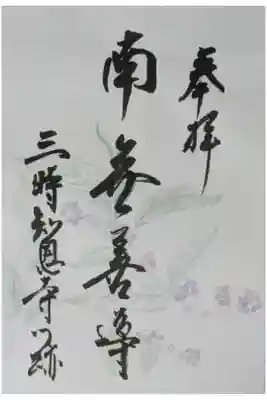 奉拝
南無善導
三時知恩寺門跡